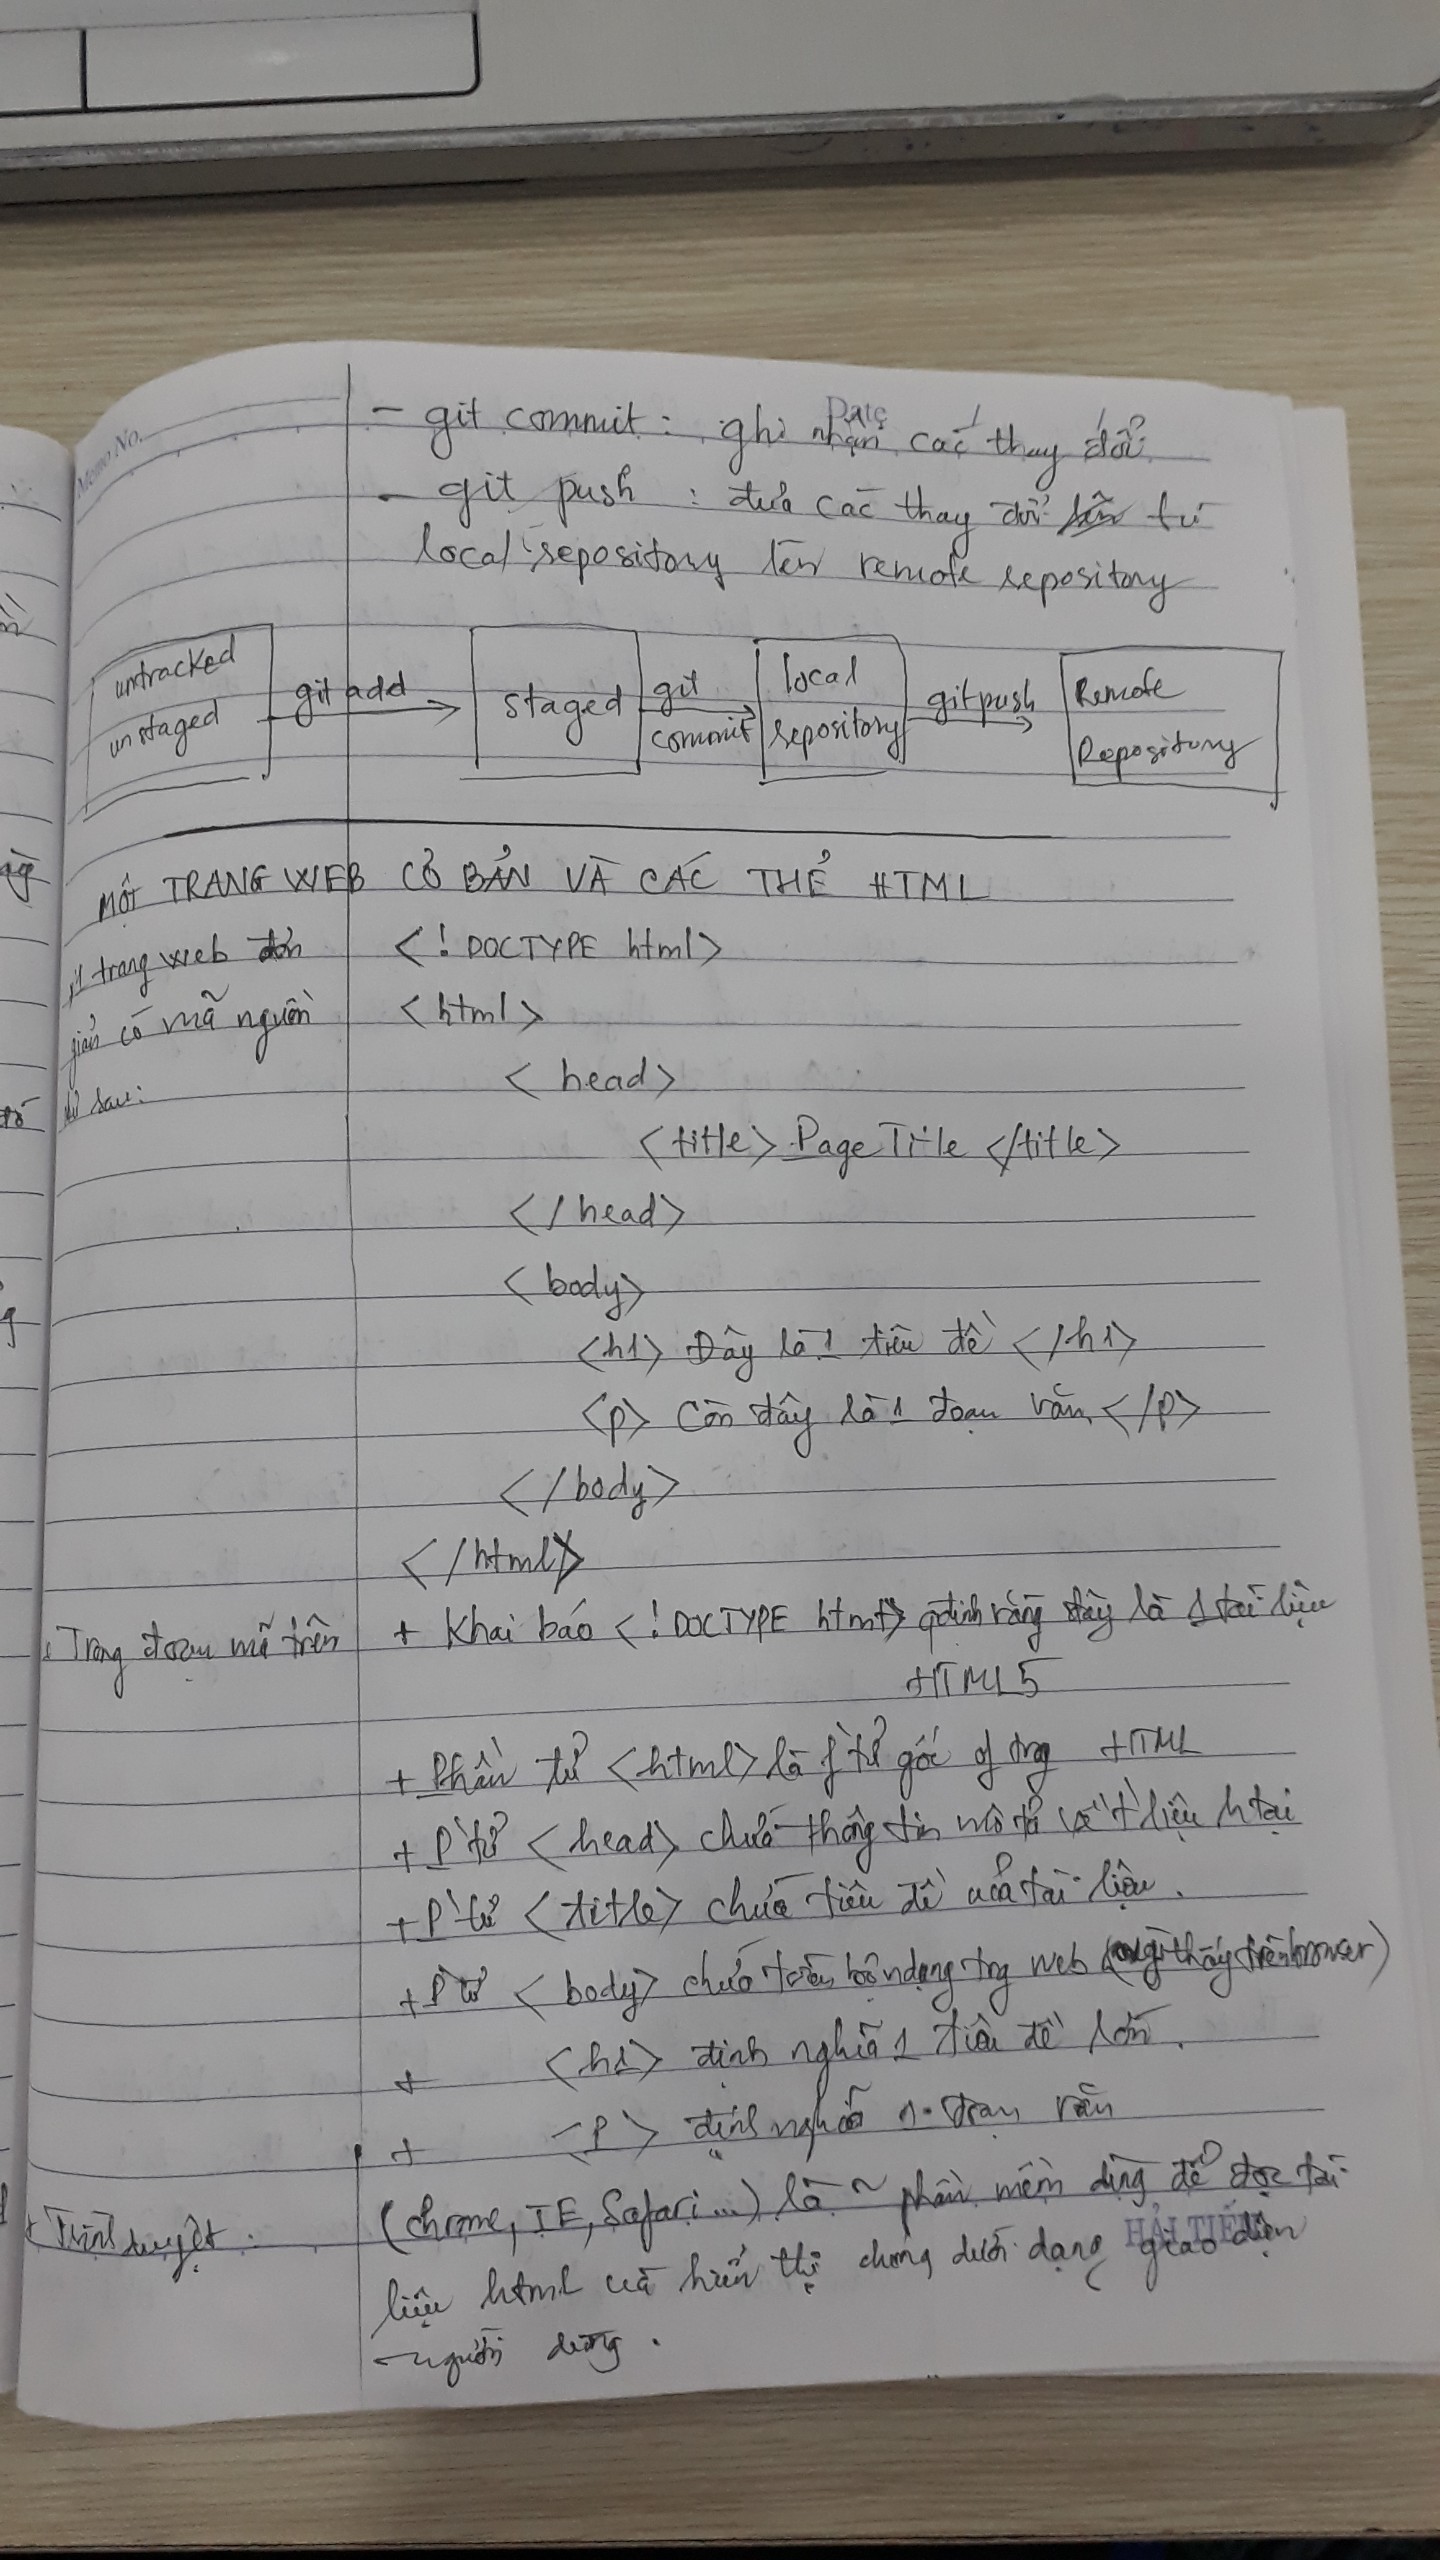 Memo No.
Date / /
- git commit : ghi nhận các thay đổi
- git push : đưa các thay đổi từ
local repository lên remote repository
untracked
unstaged
git add
staged
git
commit
local
repository
git push
Remote
Repository
MỘT TRANG WEB CƠ BẢN VÀ CÁC THẺ HTML
1 trang web đơn
giản có mã nguồn
như sau:
<!DOCTYPE html>
<html>
<head>
<title> Page Title </title>
</head>
<body>
<h1> Đây là 1 tiêu đề </h1>
<p> Còn đây là 1 đoạn văn </p>
</body>
</html>
Trong đoạn mã trên
+ Khai báo <!DOCTYPE html> qđịnh rằng đây là 1 tài liệu
HTML5
+ Phần tử <html> là p` tử gốc of trg HTML
+ P` tử <head> chứa thông tin mô tả về t` liệu htại
+ P` tử <title> chứa tiêu đề của tài liệu.
+ P` tử <body> chứa toàn bộ ndạng trg web ( thấy trên browser)
+ <h1> định nghĩa 1 tiêu đề lớn.
+ <p> định nghĩa 1 đoạn văn
+ Trình duyệt :
(chrome, IE, Safari...) là ~ phần mềm dùng để đọc tài
liệu html và hiển thị chúng dưới dạng giao diện
người dùng.
HẢI TIẾN